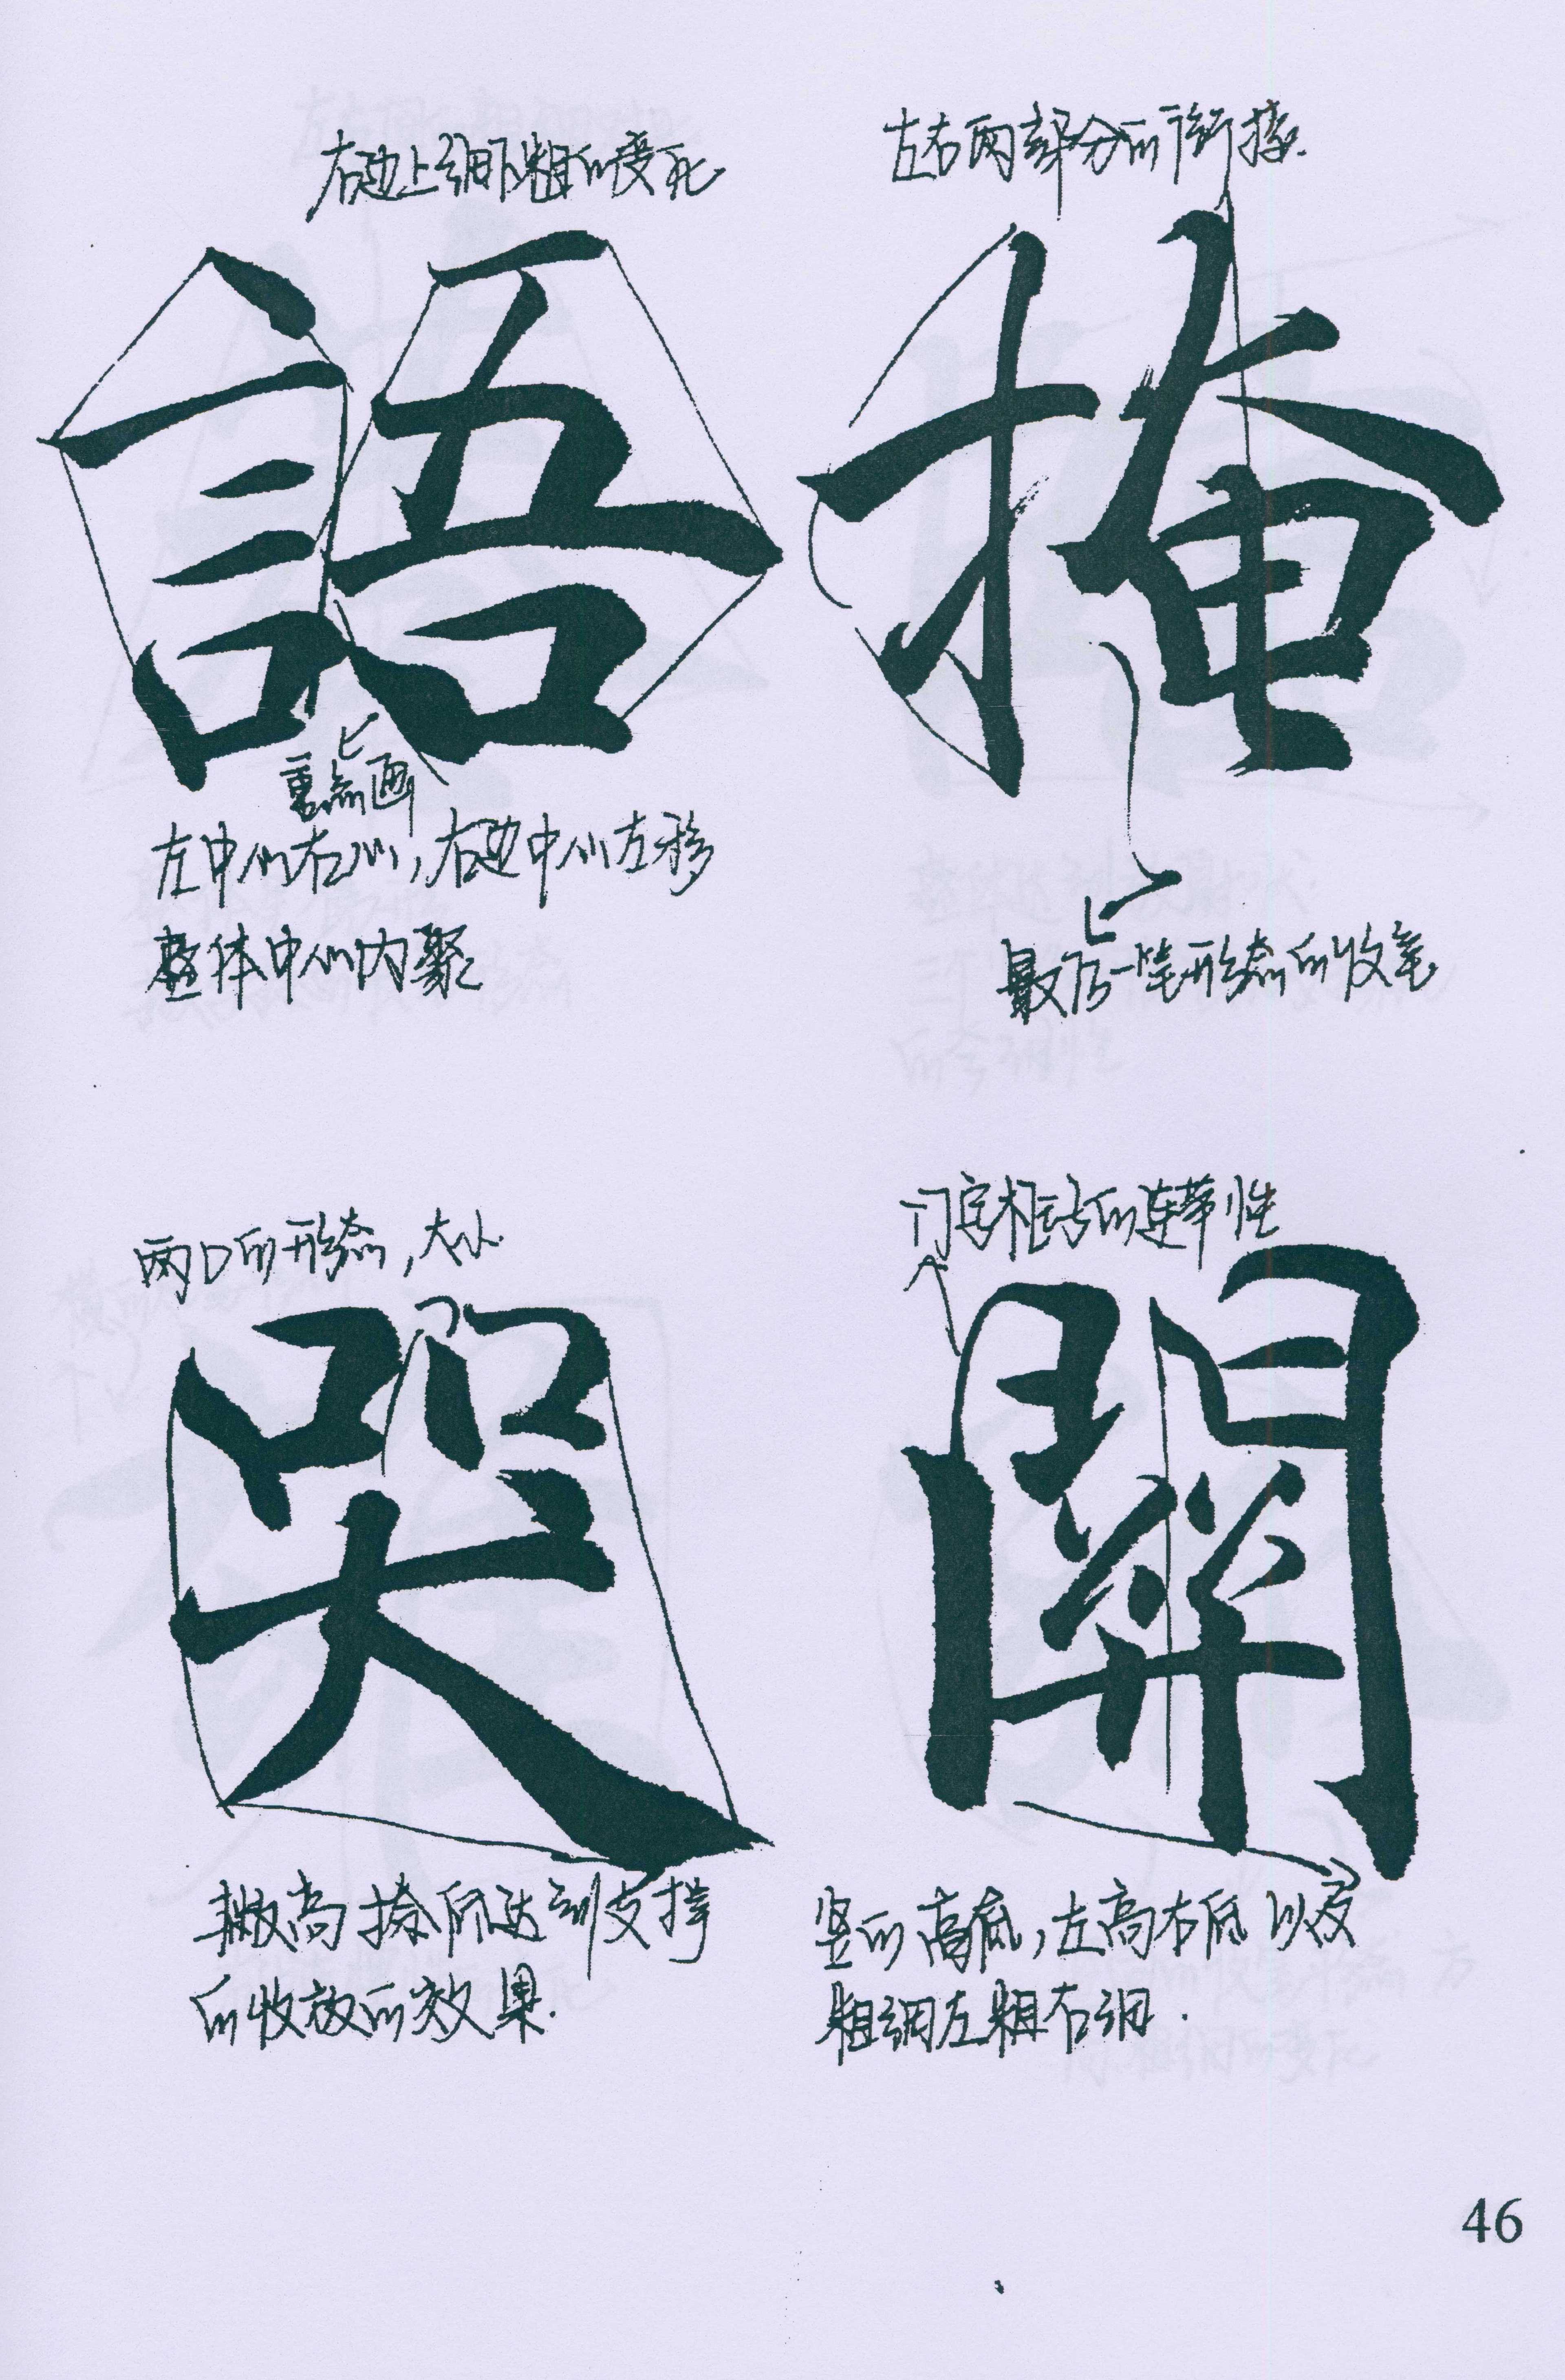 右边上细下粗的变化
語
重点画
左中心右心,右边中心左移
整体中心内聚
左右两部分的衔接.
掩
最后一笔形态的收笔
两口的形态,大小.
哭
撇高捺低达到支撑
的收放的效果.
门字框的连带性
開
竖的高低,左高右低以及
粗细左粗右细.
46